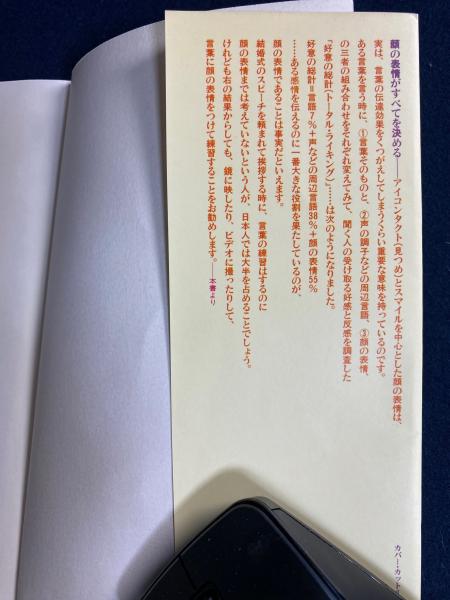 顔の表情がすべてを決める——アイコンタクト(見つめ)とスマイルを中心とした顔の表情は、
実は、言葉の伝達効果をくつがえしてしまうくらい重要な意味を持っているのです。
ある言葉を言う時に、①言葉そのものと、②声の調子などの周辺言語、③顔の表情、
の三者の組み合わせをそれぞれ変えてみて、聞く人の受け取る好感と反感を調査した
「好意の総計(トータル・ライキング)」……は次のようになりました。
好意の総計=言語7%+声などの周辺言語38%+顔の表情55%
……ある感情を伝えるのに一番大きな役割を果たしているのが、
顔の表情であることは事実だといえます。
結婚式のスピーチを頼まれて挨拶する時に、言葉の練習はするのに
顔の表情までは考えていないという人が、日本人では大半を占めることでしょう。
けれども右の結果からしても、鏡に映したり、ビデオに撮ったりして、
言葉に顔の表情をつけて練習することをお勧めします。——本書より
カバー・カット